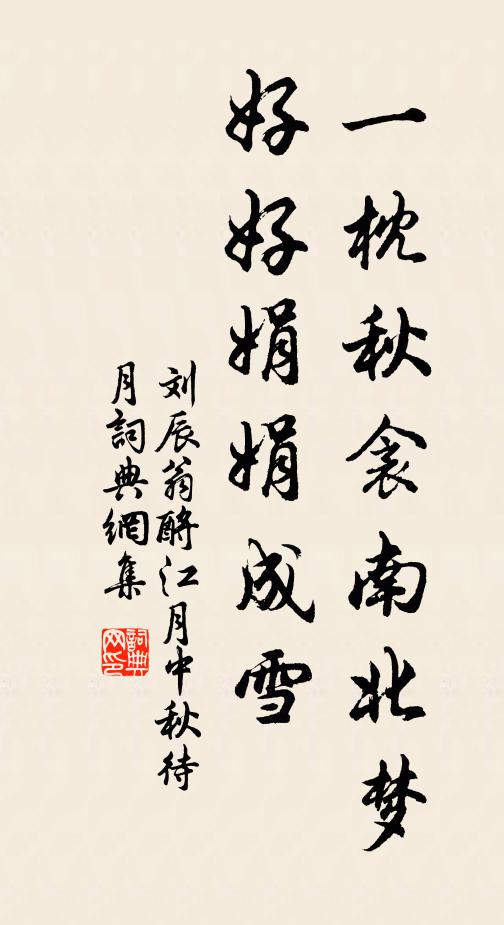 一枕秋衾南北梦
好好娟娟成雪
刘辰翁酹江月中秋待
月詞典網集
詞典
网印